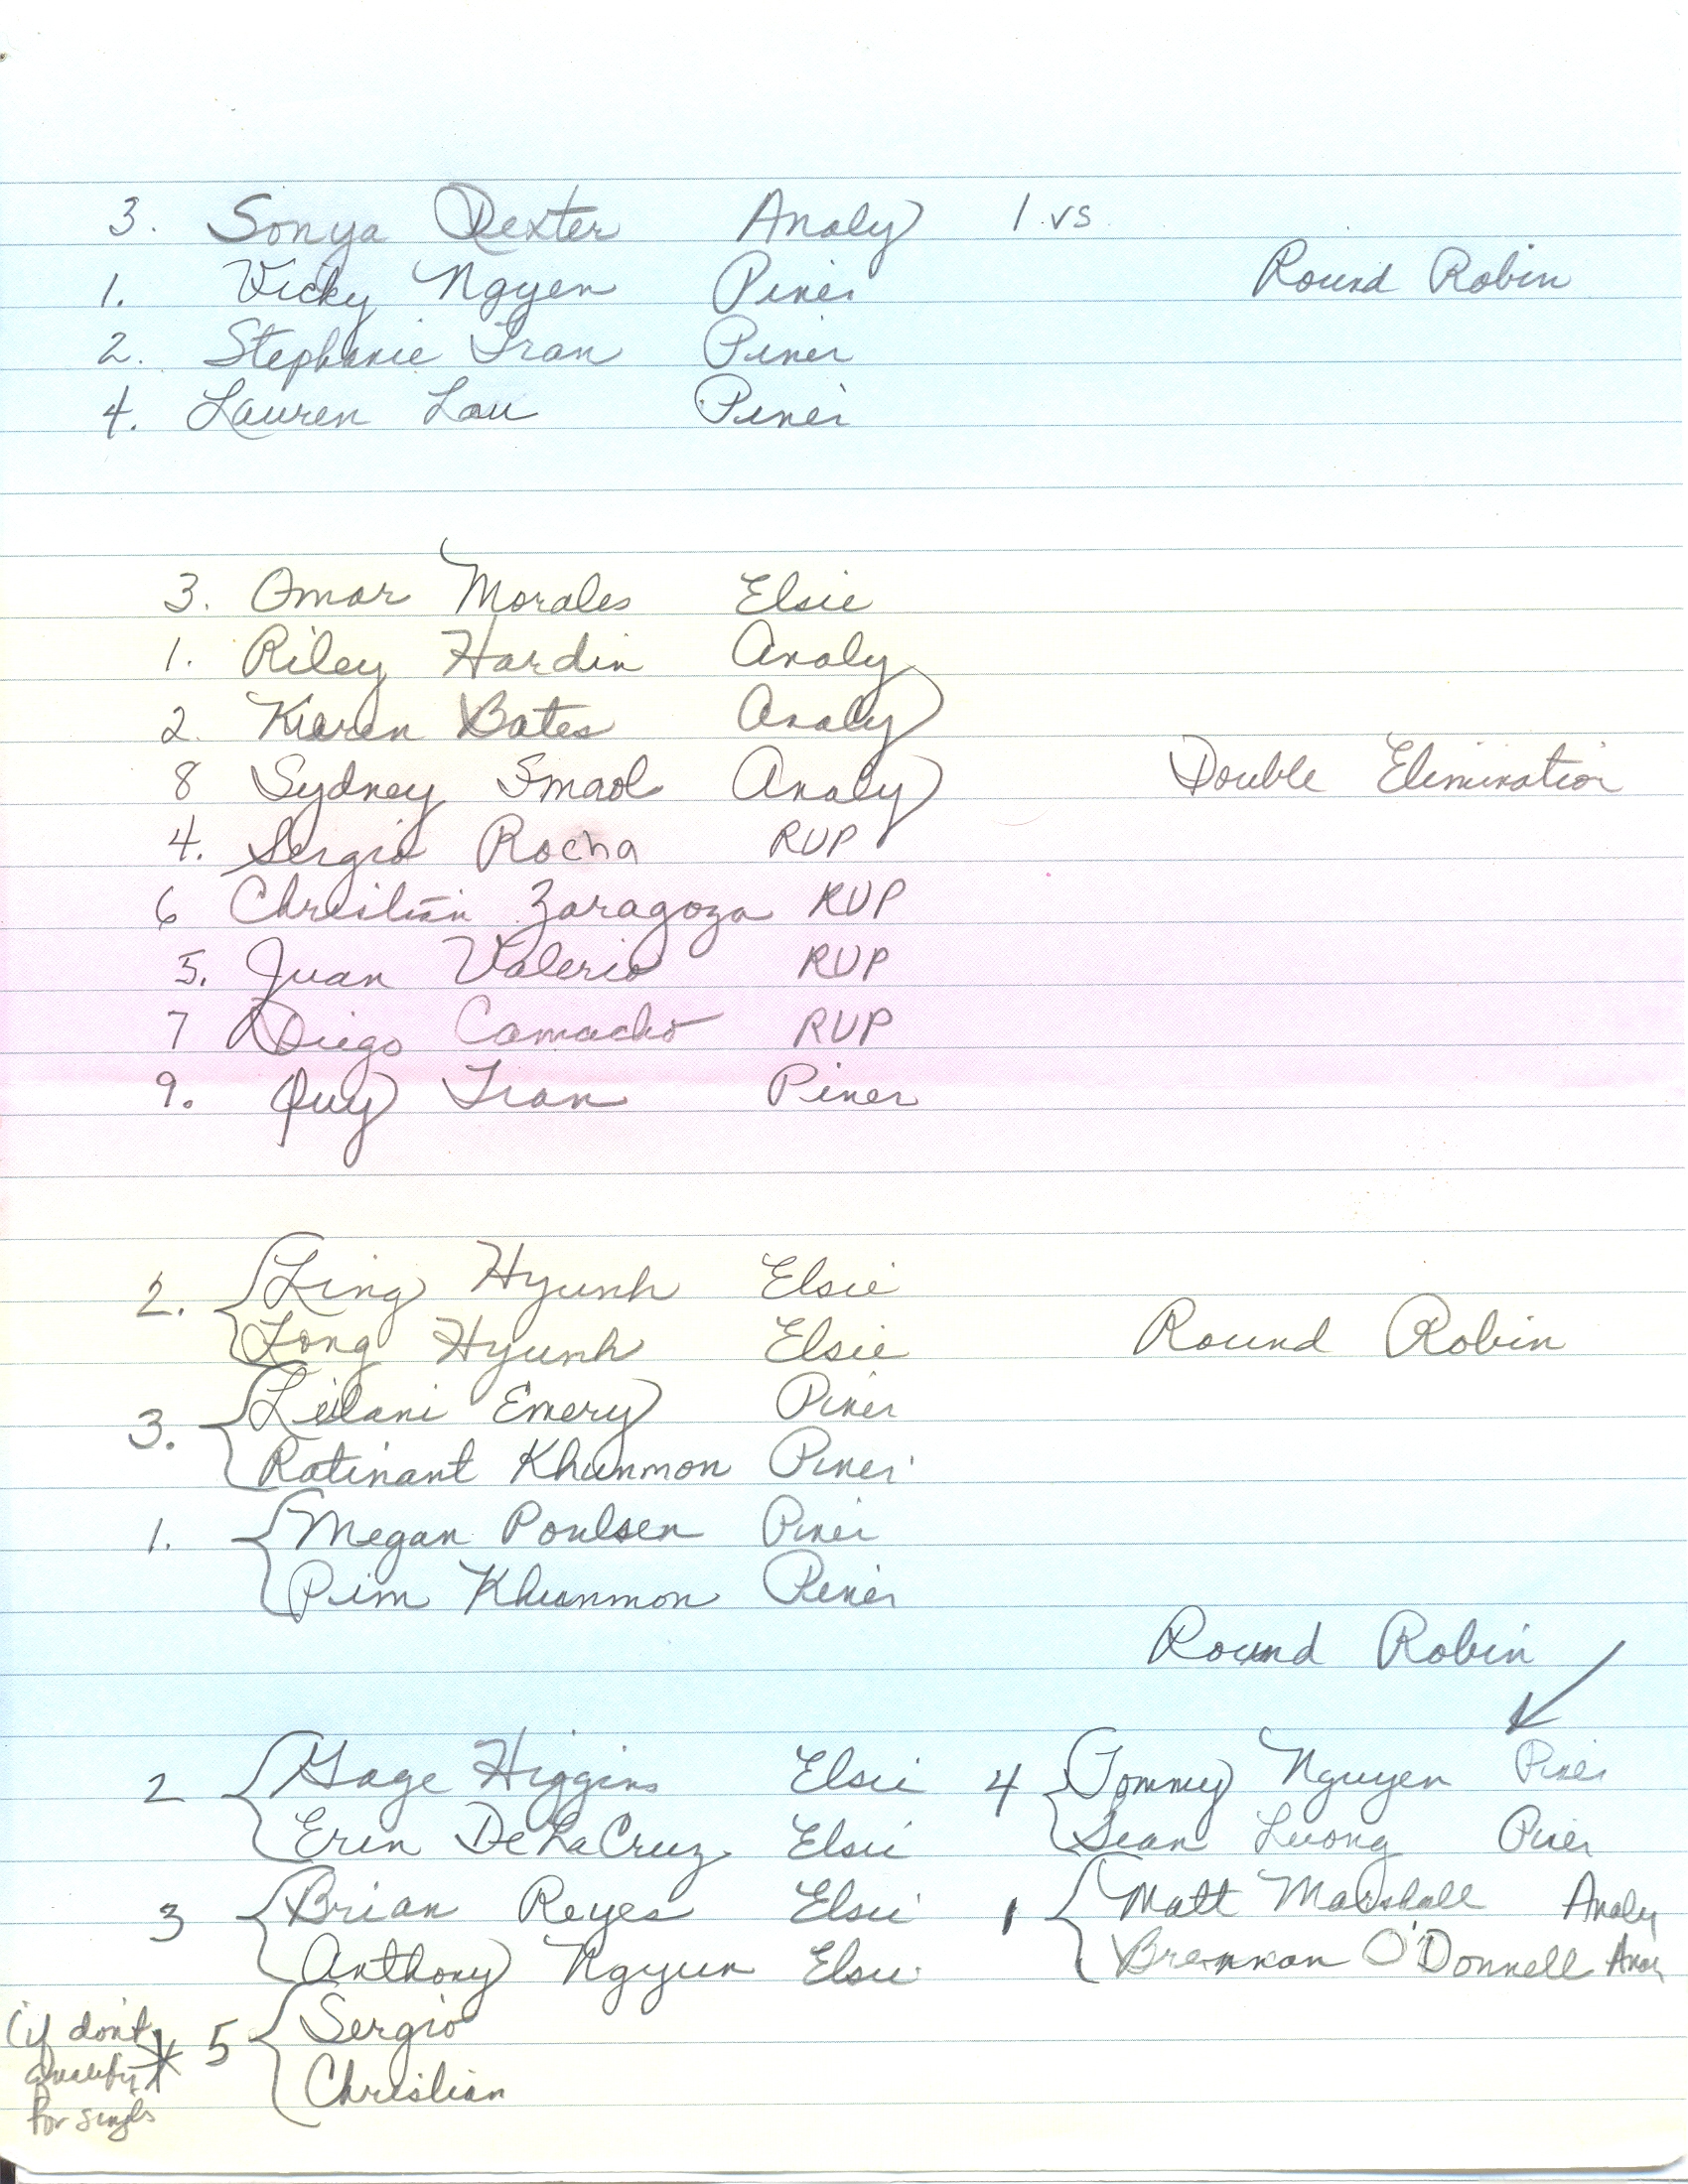 3. Sonya Dexter Analy 1 vs.
Round Robin
1. Vicky Ngyen Piner
2. Stephanie Tran Piner
4. Lauren Lau Piner
3. Omar Morales Elsie
1. Riley Hardin Analy
2. Kiaren Bates Analy
8 Sydney Smaol Analy
Double Elimination
4. Sergio Rocha RUP
6 Christian Zaragoza RUP
5. Juan Valerio RUP
7 Diego Camacho RUP
9. Quy Tran Piner
2. Ling Hyunh Elsie
Long Hyunh Elsie
Round Robin
3. Leilani Emery Piner
Ratinant Khunmon Piner
1. Megan Poulsen Piner
Pim Khunmon Piner
Round Robin
2 Gage Higgins Elsie 4 Tommy Nguyen Piner
Erin DeLaCruz Elsie Sean Luong Piner
3 Brian Reyes Elsie 1 Matt Marshall Analy
Anthony Ngyun Elsie Brennan O'Donnell Analy
5 Sergio
Christian
(if don't
qualify
for singls